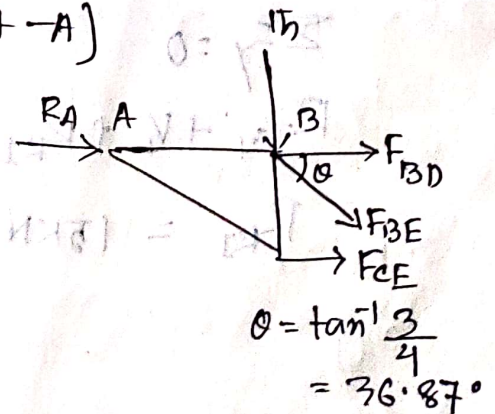 -A]
15
R_A A B F_BD
θ
F_BE
F_CE
θ = tan⁻¹ 3/4
= 36.87°